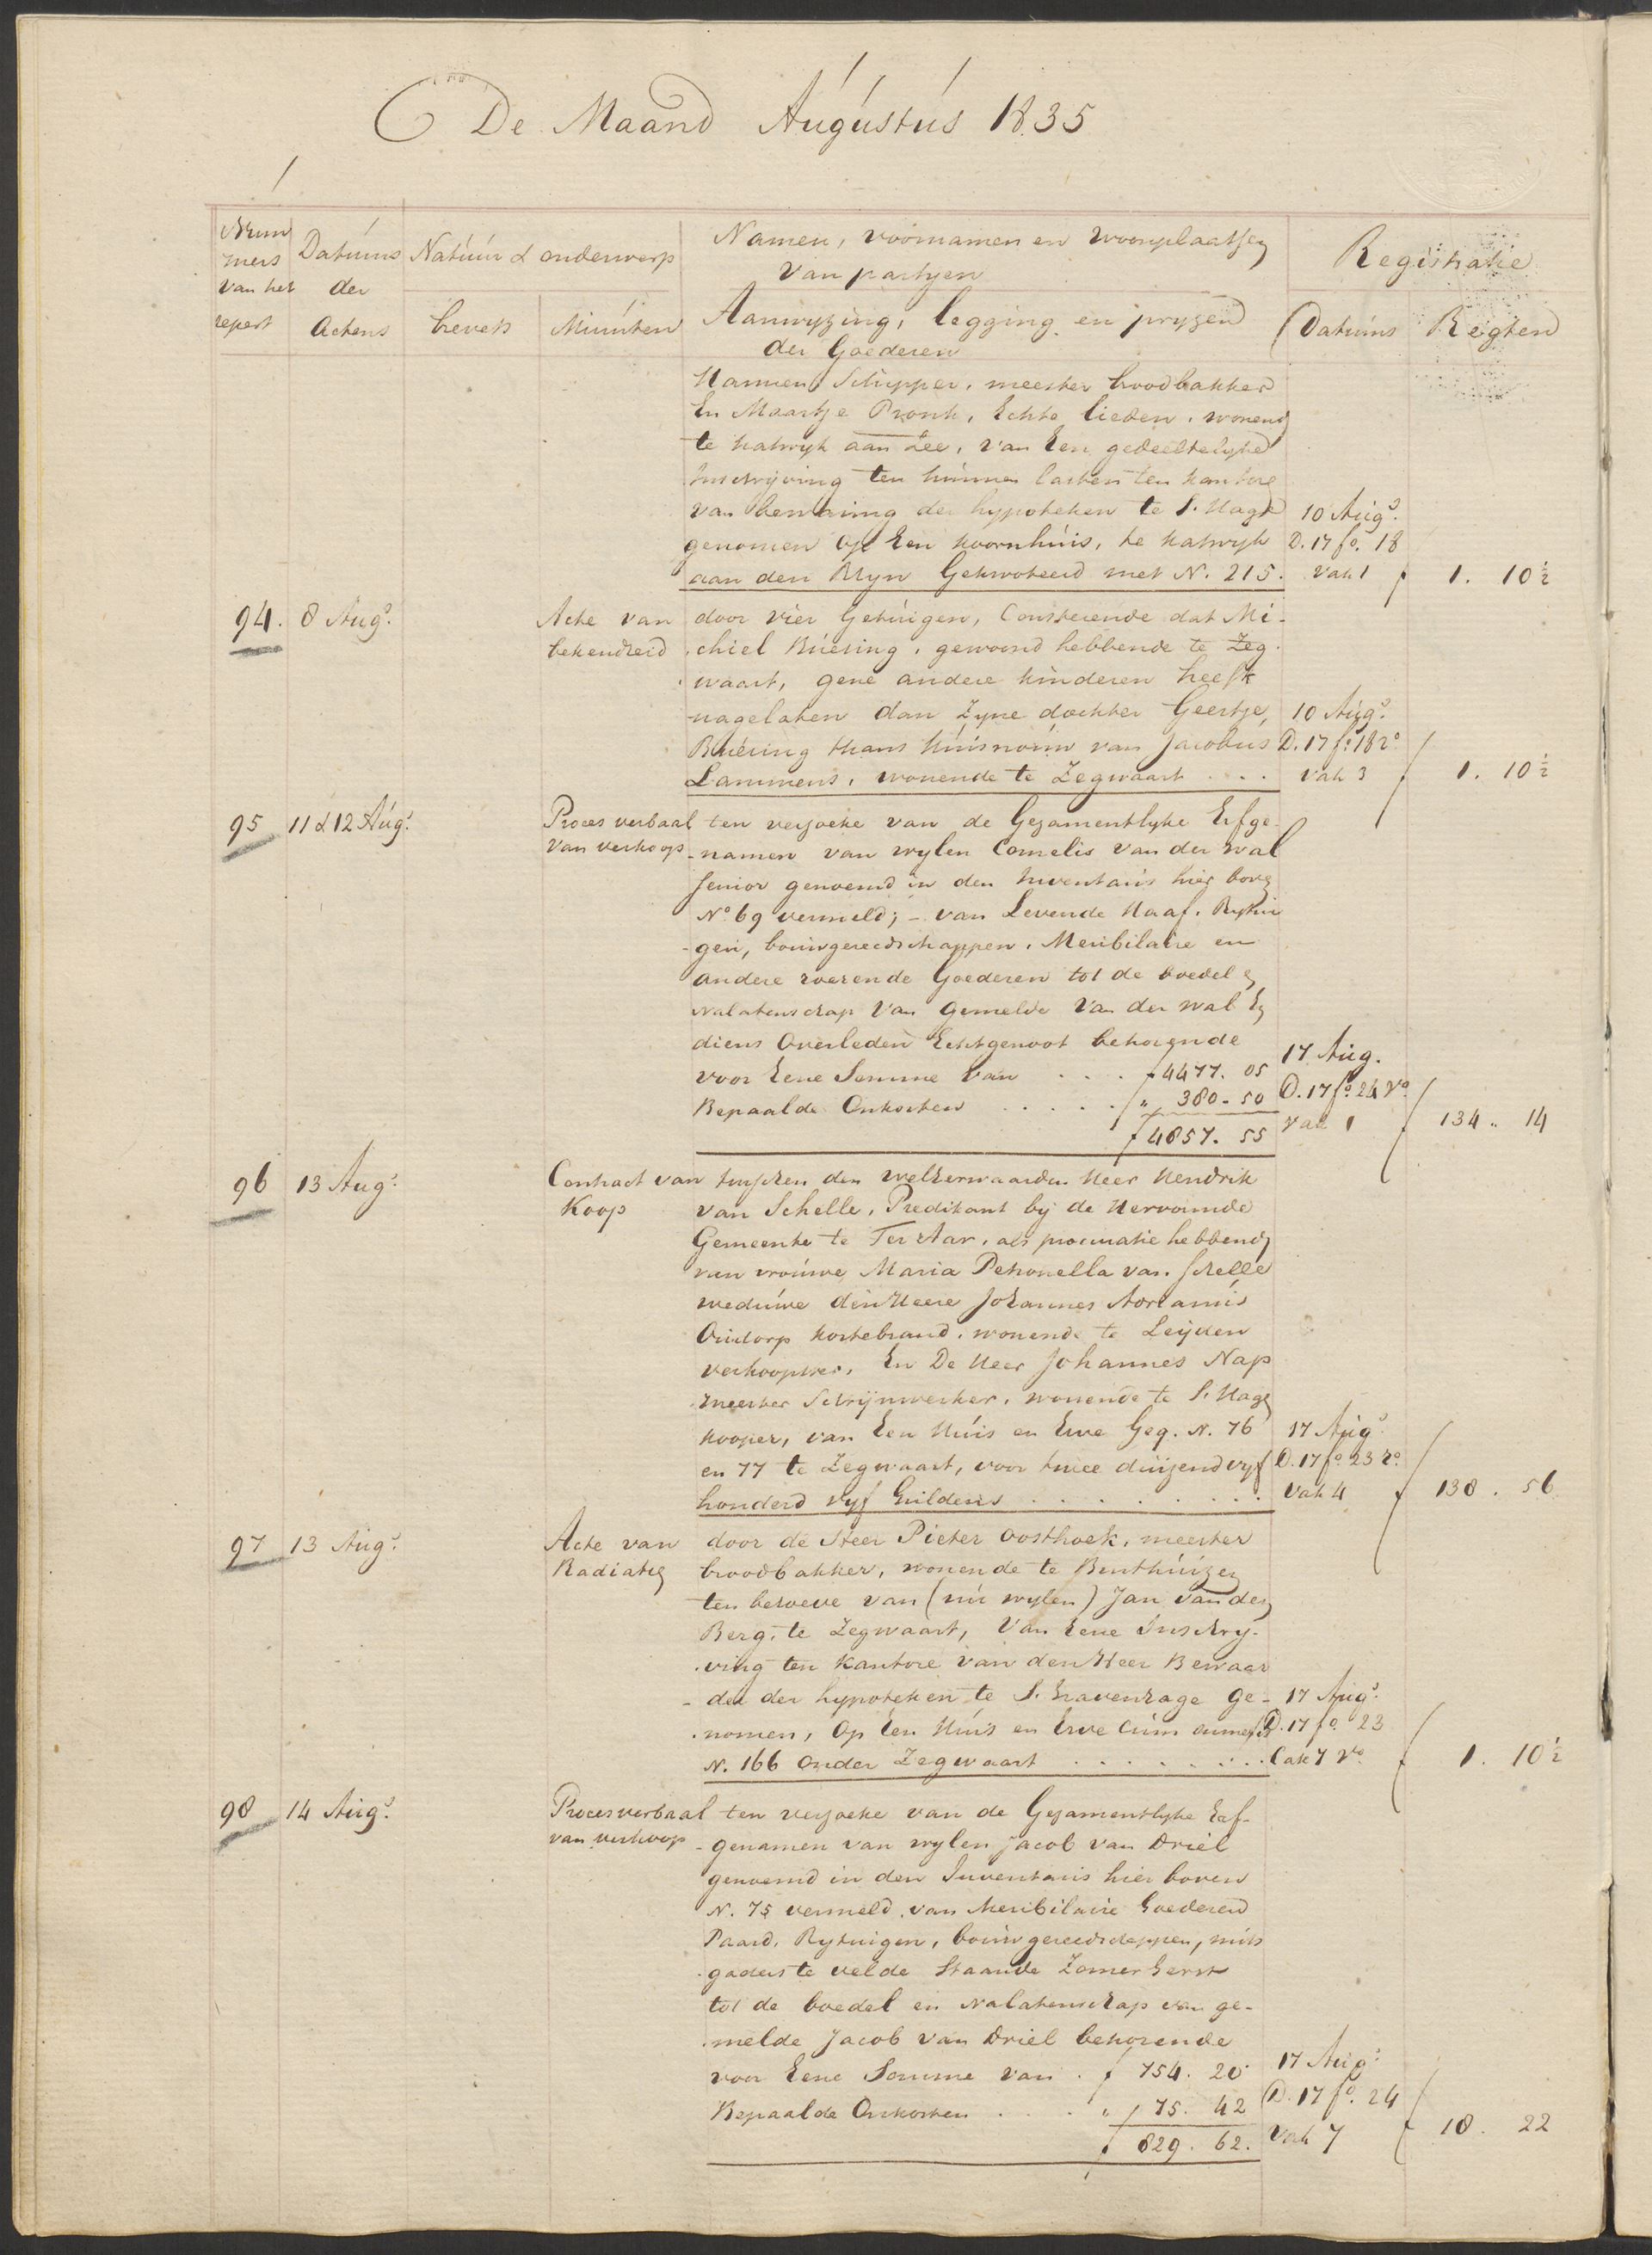 De Maand Augustus 1835
Num
mers
van het
repert
Datums
der
Actens
Natuur & onderwerp
brevets
Minuten
Namen, voornamen en woonplaatsen
van partyen
Aanwyzing, legging en pryzen
der Goederen
Registratie
Datums
Regten
Harmen Schipper, meester broodbakker
En Maartje Pronk, Echte lieden, wonend
te Katwyk aan Zee, van Een gedeeltelyke
Inschrijving ten hunnen lasten ten kantore
van bewaring der hypoteken te S. Hage
genomen op Een koornhuis, te Katwyk
aan den Rhyn Gekwoteerd met N. 215.
10 Augs.
D. 17 fo. 18
vak 1
f 1. 10½
94.
8 Augs.
Acte van
bekendheid
door vier Getuigen, Consterende dat Mi-
chiel Buesing, gewoond hebbende te Zeg-
waart, gene andere kinderen heeft
nagelaten dan Zyne dochter Geertje
Buesing thans huisvrouw van Jacobus
Lammens, wonende te Zegwaart . . .
10 Augs.
D. 17 fo. 18 ro.
vak 3
f 1. 10½
95
11 & 12 Augs.
Proces verbaal
van verkoop
ten verzoeke van de Gezamentlyke Erfge-
namen van wylen Cornelis van der Wal
Senior genoemd in den Inventaris hier boven
No 69 vermeld; - van Levende Haaf, Rytui
-gen, bouwgereedschappen, Meubilaire en
andere roerende Goederen tot de boedel en
Nalatenschap van gemelde van der Wal En
diens Overleden Echtgenoot behorende
voor Eene Somme van . . . f 4477. 05
Bepaalde Onkosten . . . . . " 380 - 50
f 4857. 55
17 Aug.
D. 17 fo. 24 vo.
vak 1
f 134 " 14
96
13 Augs.
Contract van
Koop
tusschen den welEerwaarden Heer Hendrik
van Schelle, Predikant bij de Hervormde
Gemeente te Ter Aar, als procuratie hebbend
van vrouwe Maria Petronella van Schelle
weduwe den Heere Johannes Adrianus
Oudorp Kortebrand, wonende te Leijden
verkoopster, En De Heer Johannes Nap
meester Schrijnwerker, wonende te S. Hage
kooper, van Een Huis en Erve Geq. N. 76
en 77 te Zegwaart, voor twee duizend vyf
honderd vyf Guldens . . . . . . . . .
17 Augs
D. 17 fo. 23 ro.
vak 4
f 138. 56
97
13 Augs.
Acte van
Radiatie
door de Heer Pieter Oosthoek, meester
broodbakker, wonende te Benthuizen
ten behoeve van (nu wylen) Jan van den
Berg, te Zegwaart, Van Eene Inschry-
ving ten Kantore van den Heer Bewaar
- der der hypoteken te S. Gravenhage ge-
nomen, Op Een Huis en Erve cum annexis
N. 166 Onder Zegwaart . . . . . . . .
17 Augs.
D. 17 fo. 23
vak 7 vo
f 1. 10½
98
14 Augs.
Proces verbaal
van verkoop
ten verzoeke van de Gezamentlyke Erf-
genamen van wylen Jacob van Driel
genoemd in den Inventaris hier boven
N. 75 vermeld, van Meubilaire Goederen
Paard, Rytuigen, bouwgereedschappen, mits
gaders te velde Staande Zomer Gerst
tot de boedel en Nalatenschap van ge-
melde Jacob van Driel behorende
voor Eene Somme van . f 754. 20
Bepaalde Onkosten . . . . " 75. 42
f 829. 62.
17 Augs.
D. 17 fo. 24
vak 7
f 18. 22